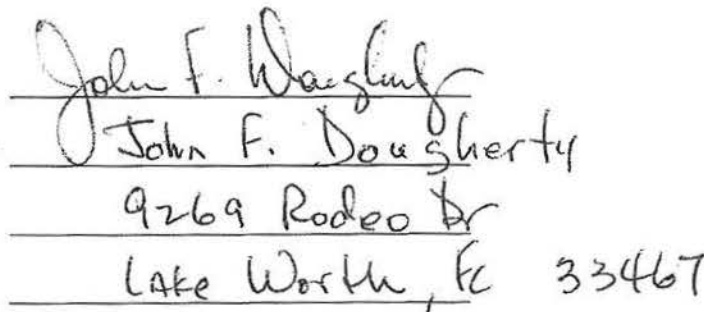 John F. Dougherty
John F. Dougherty
9269 Rodeo Dr
Lake Worth, FL 33467